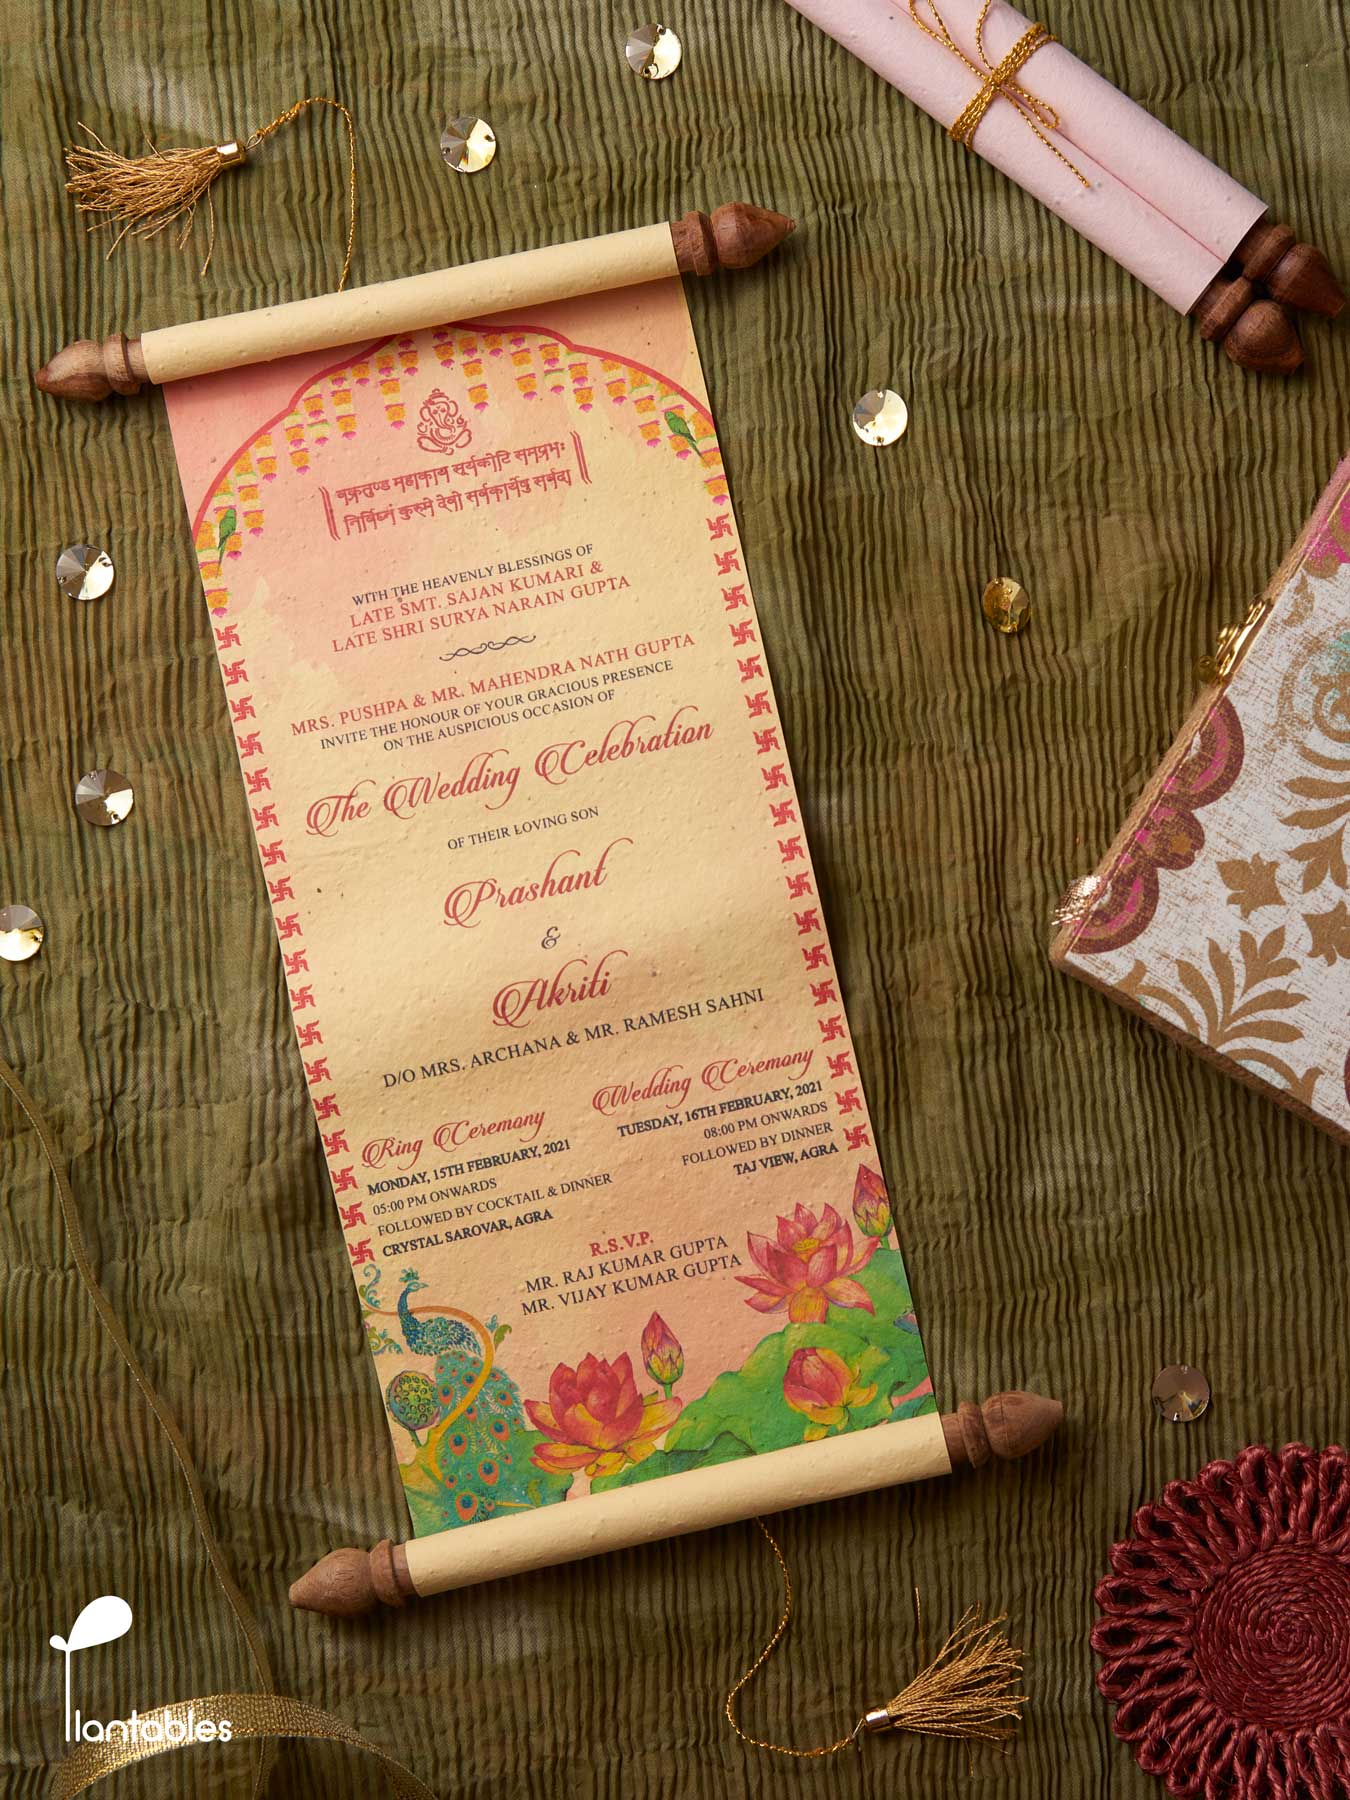 वक्रतुण्ड महाकाय सूर्यकोटि समप्रभः
निर्विघ्नं कुरुमे देवो सर्वकार्येषु सर्वदा
WITH THE HEAVENLY BLESSINGS OF
LATE SMT. SAJAN KUMARI &
LATE SHRI SURYA NARAIN GUPTA
MRS. PUSHPA & MR. MAHENDRA NATH GUPTA
INVITE THE HONOUR OF YOUR GRACIOUS PRESENCE
ON THE AUSPICIOUS OCCASION OF
The Wedding Celebration
OF THEIR LOVING SON
Prashant
&
Akriti
D/O MRS. ARCHANA & MR. RAMESH SAHNI
Ring Ceremony
MONDAY, 15TH FEBRUARY, 2021
05:00 PM ONWARDS
FOLLOWED BY COCKTAIL & DINNER
CRYSTAL SAROVAR, AGRA
Wedding Ceremony
TUESDAY, 16TH FEBRUARY, 2021
08:00 PM ONWARDS
FOLLOWED BY DINNER
TAJ VIEW, AGRA
R.S.V.P.
MR. RAJ KUMAR GUPTA
MR. VIJAY KUMAR GUPTA
Plantables